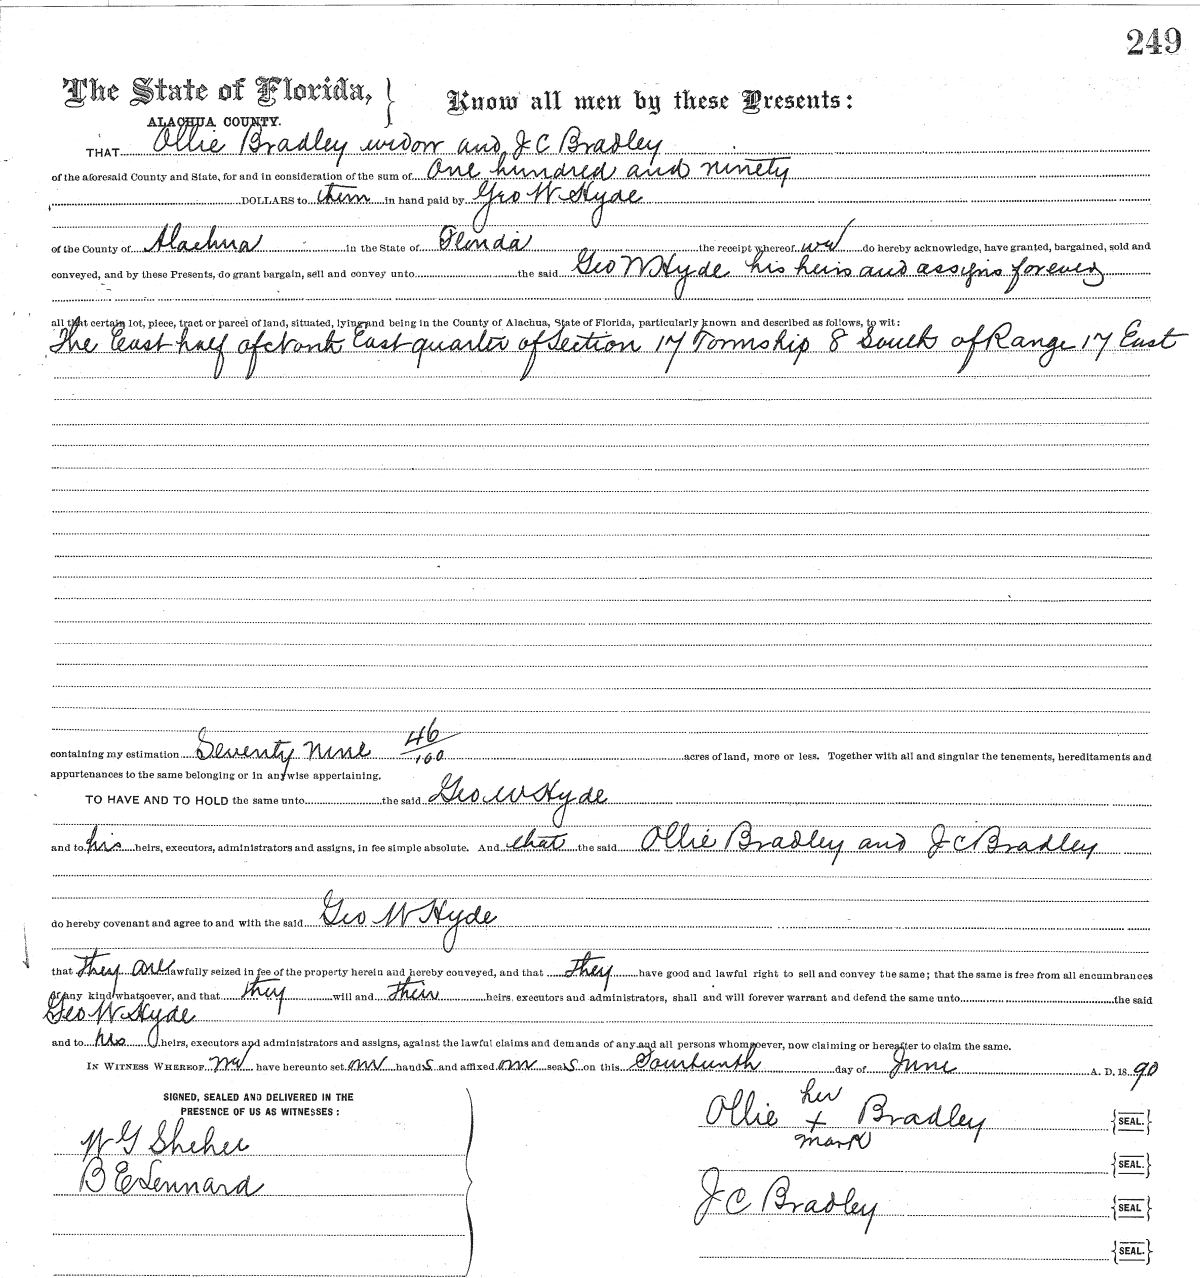 249
The State of Florida, } Know all men by these Presents:
ALACHUA COUNTY.
THAT Ollie Bradley widow and J C Bradley
of the aforesaid County and State, for and in consideration of the sum of One hundred and ninety
DOLLARS to them in hand paid by Geo W Hyde
of the County of Alachua in the State of Florida the receipt whereof we do hereby acknowledge, have granted, bargained, sold and
conveyed, and by these Presents, do grant bargain, sell and convey unto the said Geo W Hyde his heirs and assigns forever
all that certain lot, piece, tract or parcel of land, situated, lying and being in the County of Alachua, State of Florida, particularly known and described as follows, to wit:
The East half of North East quarter of Section 17 Township 8 South of Range 17 East
containing my estimation Seventy nine 46/100 acres of land, more or less. Together with all and singular the tenements, hereditaments and
appurtenances to the same belonging or in anywise appertaining.
TO HAVE AND TO HOLD the same unto the said Geo W Hyde
and to his heirs, executors, administrators and assigns, in fee simple absolute. And that the said Ollie Bradley and J C Bradley
do hereby covenant and agree to and with the said Geo W Hyde
that they are lawfully seized in fee of the property herein and hereby conveyed, and that they have good and lawful right to sell and convey the same; that the same is free from all encumbrances
of any kind whatsoever, and that they will and their heirs, executors and administrators, shall and will forever warrant and defend the same unto the said
Geo W Hyde
and to his heirs, executors and administrators and assigns, against the lawful claims and demands of any and all persons whomsoever, now claiming or hereafter to claim the same.
IN WITNESS WHEREOF we have hereunto set our hands and affixed our seals on this Fourteenth day of June A. D. 1890
SIGNED, SEALED AND DELIVERED IN THE
PRESENCE OF US AS WITNESSES:
W G Sheher
B E Lennard
her
Ollie + Bradley {SEAL.}
mark
{SEAL.}
J C Bradley {SEAL}
{SEAL.}